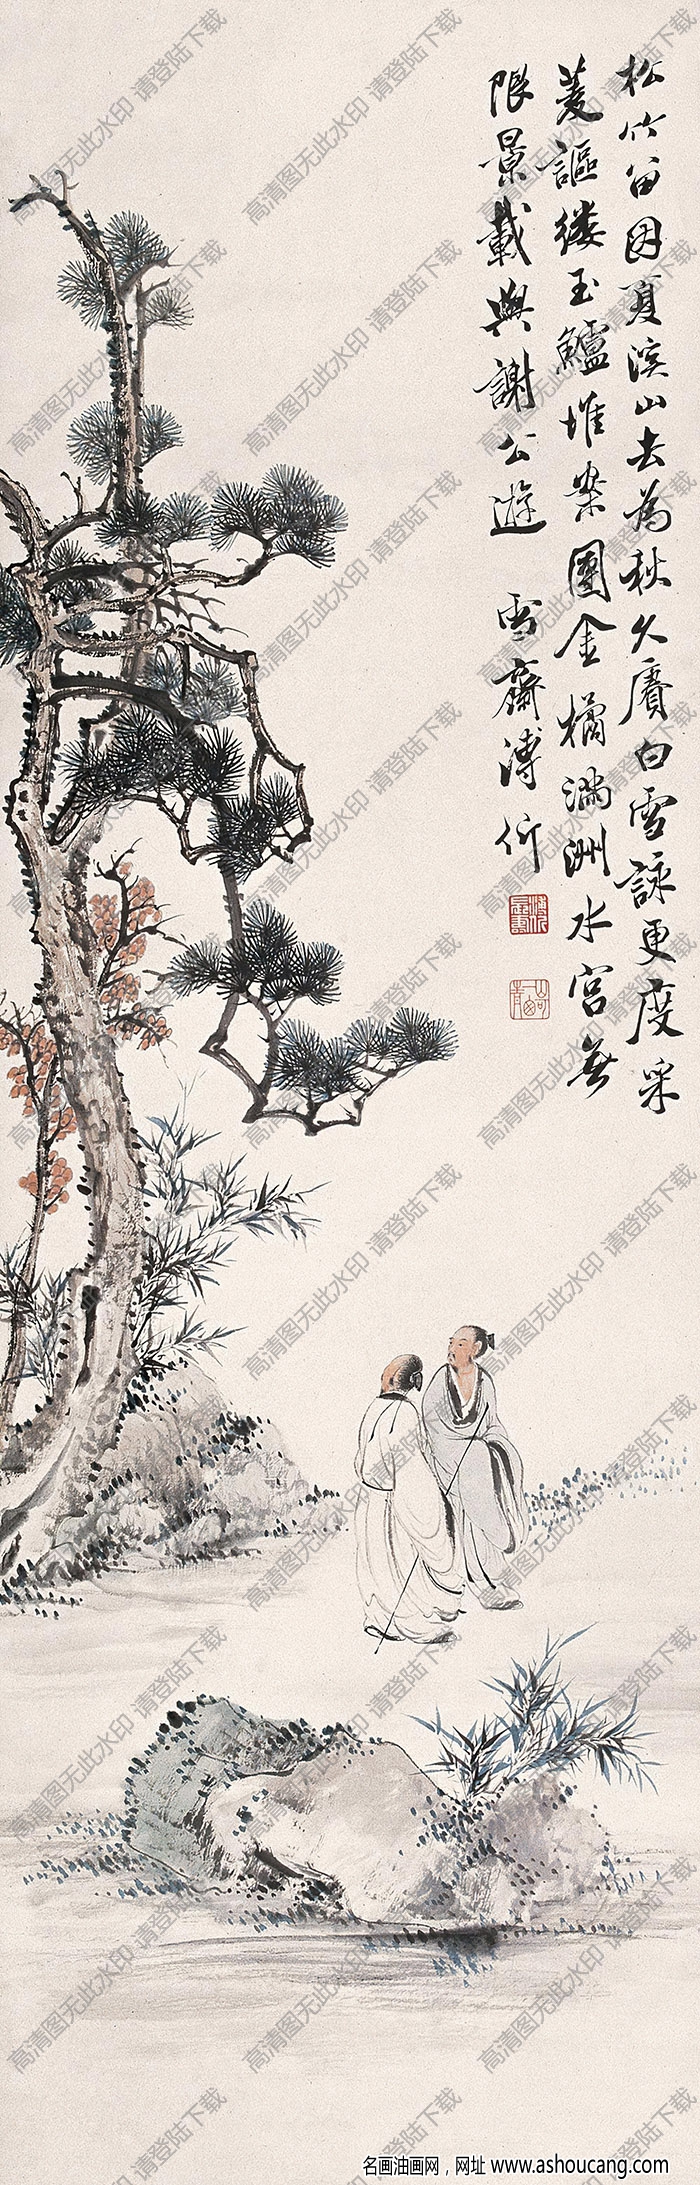 松竹留因夏溪山去為秋久賡白雪詠更度采
菱謳縷玉鱸堆案團金橘滿洲水宮無
限景載與謝公遊 雪齋溥伒
高清图无此水印 请登陆下载
名画油画网，网址 www.ashoucang.com